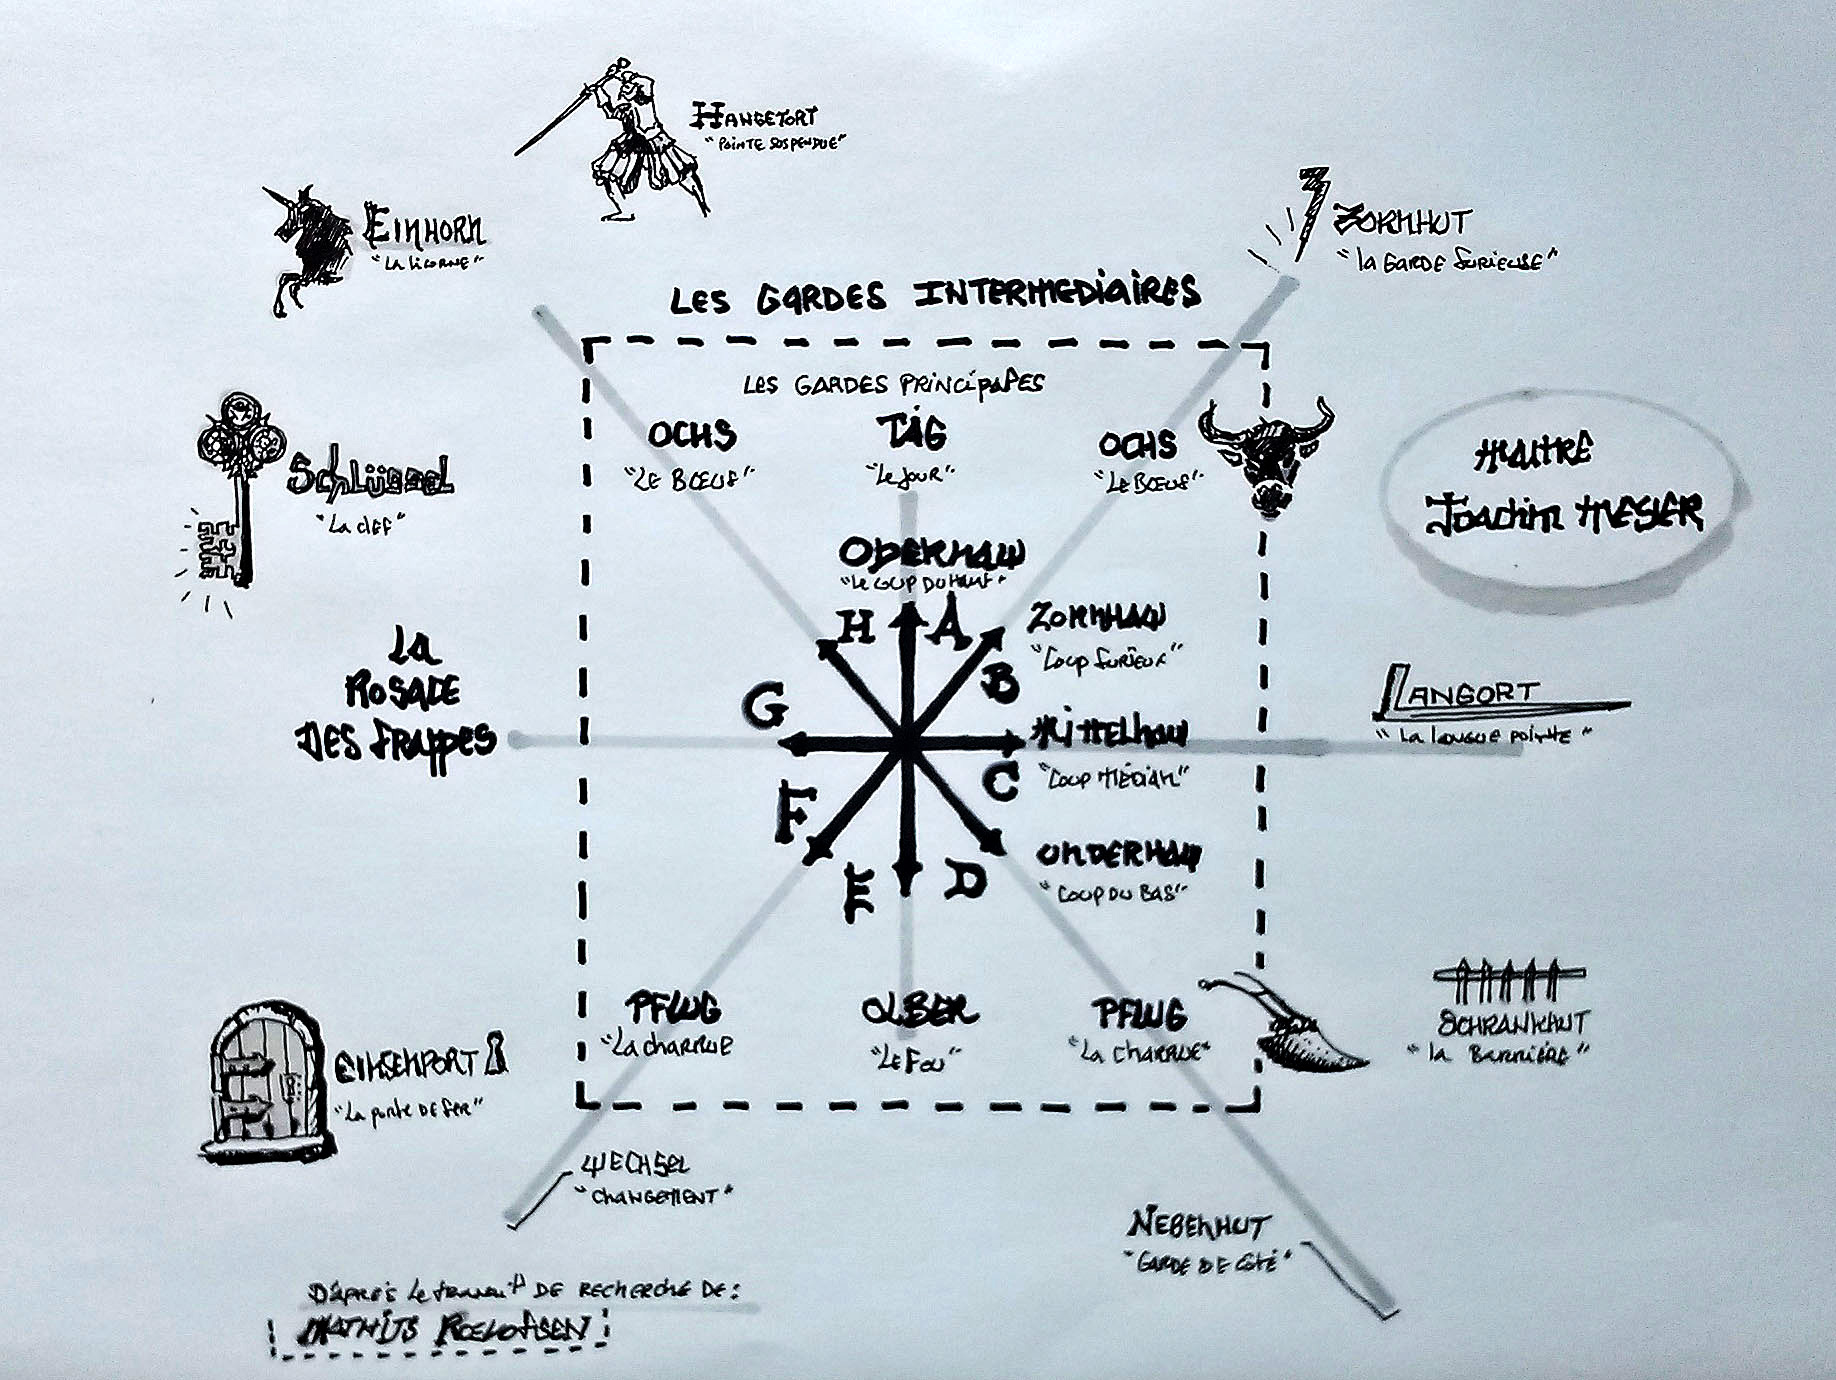 HANGETORT
"POINTE SUSPENDUE"
EINHORN
"LA LICORNE"
ZORNHUT
"la GARDE furieuse"
LES GARDES INTERMEDIAIRES
LES GARDES PRINCIPALES
OCHS
"LE BŒUF"
TAG
"Le JOUR"
OCHS
"LE BŒUF"
MAITRE
Joachim MEYER
Schlüssel
"La clef"
OBERHAW
"Le COUP DU HAUT"
H
A
ZORNHAW
"Coup furieux"
B
LA
ROSACE
DES frappes
G
MITTELHAW
"COUP MÉDIAN"
C
LANGORT
"La longue pointe"
F
E
D
UNDERHAW
"COUP DU BAS"
PFLUG
"La charrue
OLBER
"LE FOU"
PFLUG
"La CHARRUE"
SCHRANKHUT
"la BARRIÈRE"
EINSENPORT
"La porte DE fer"
WECHSEL
"CHANGEMENT"
NEBENHUT
"GARDE DE côté"
D'après le travail DE RECHERCHE DE:
MATHIJS ROELOFSEN